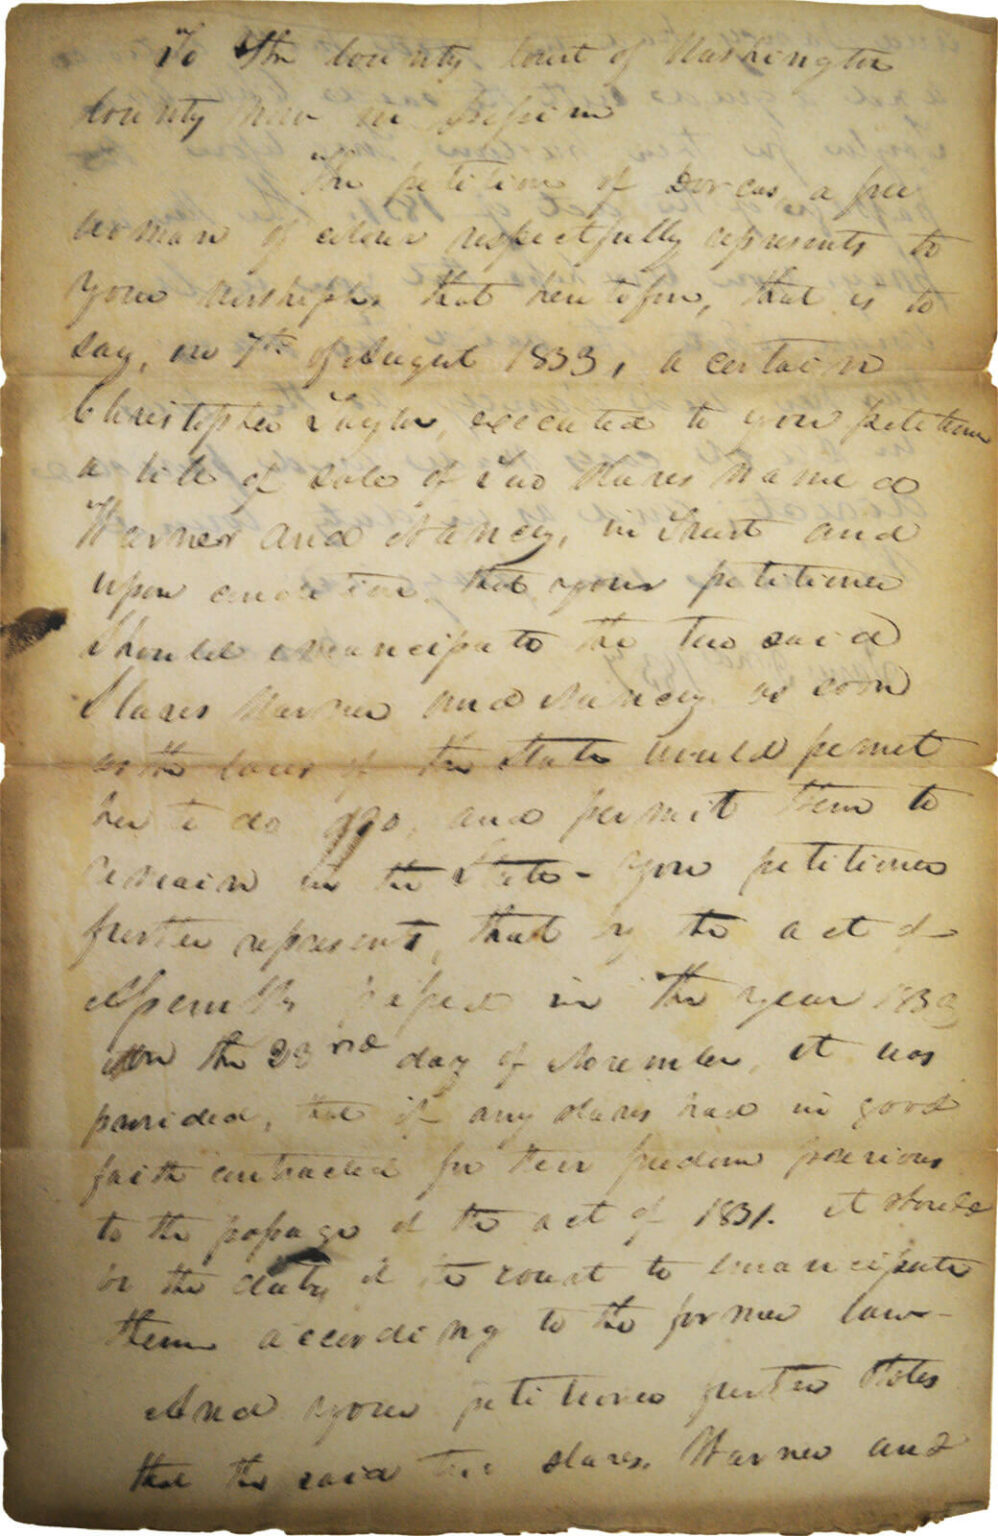 To the County Court of Washington
County now in session
The petition of Dorcas, a free
woman of colour respectfully represents to
your worships that heretofore, that is to
say, on 7th of August 1833, a certain
Christopher Taylor, executed to your petitioner
a bill of sale of two slaves named
Warner and Nancy, in trust and
upon condition that your petitioner
should emancipate the two said
slaves Warner and Nancy as soon
as the laws of the State would permit
her to do so, and permit them to
remain in the State - your petitioner
further represents, that by the act of
Assembly passed in the year 1833
on the 23rd day of November, it was
provided, that if any slaves had in good
faith contracted for their freedom previous
to the passage of the act of 1831. it should
be the duty of the court to emancipate
them according to the former law -
And your petitioner further states
that the said two slaves, Warner and